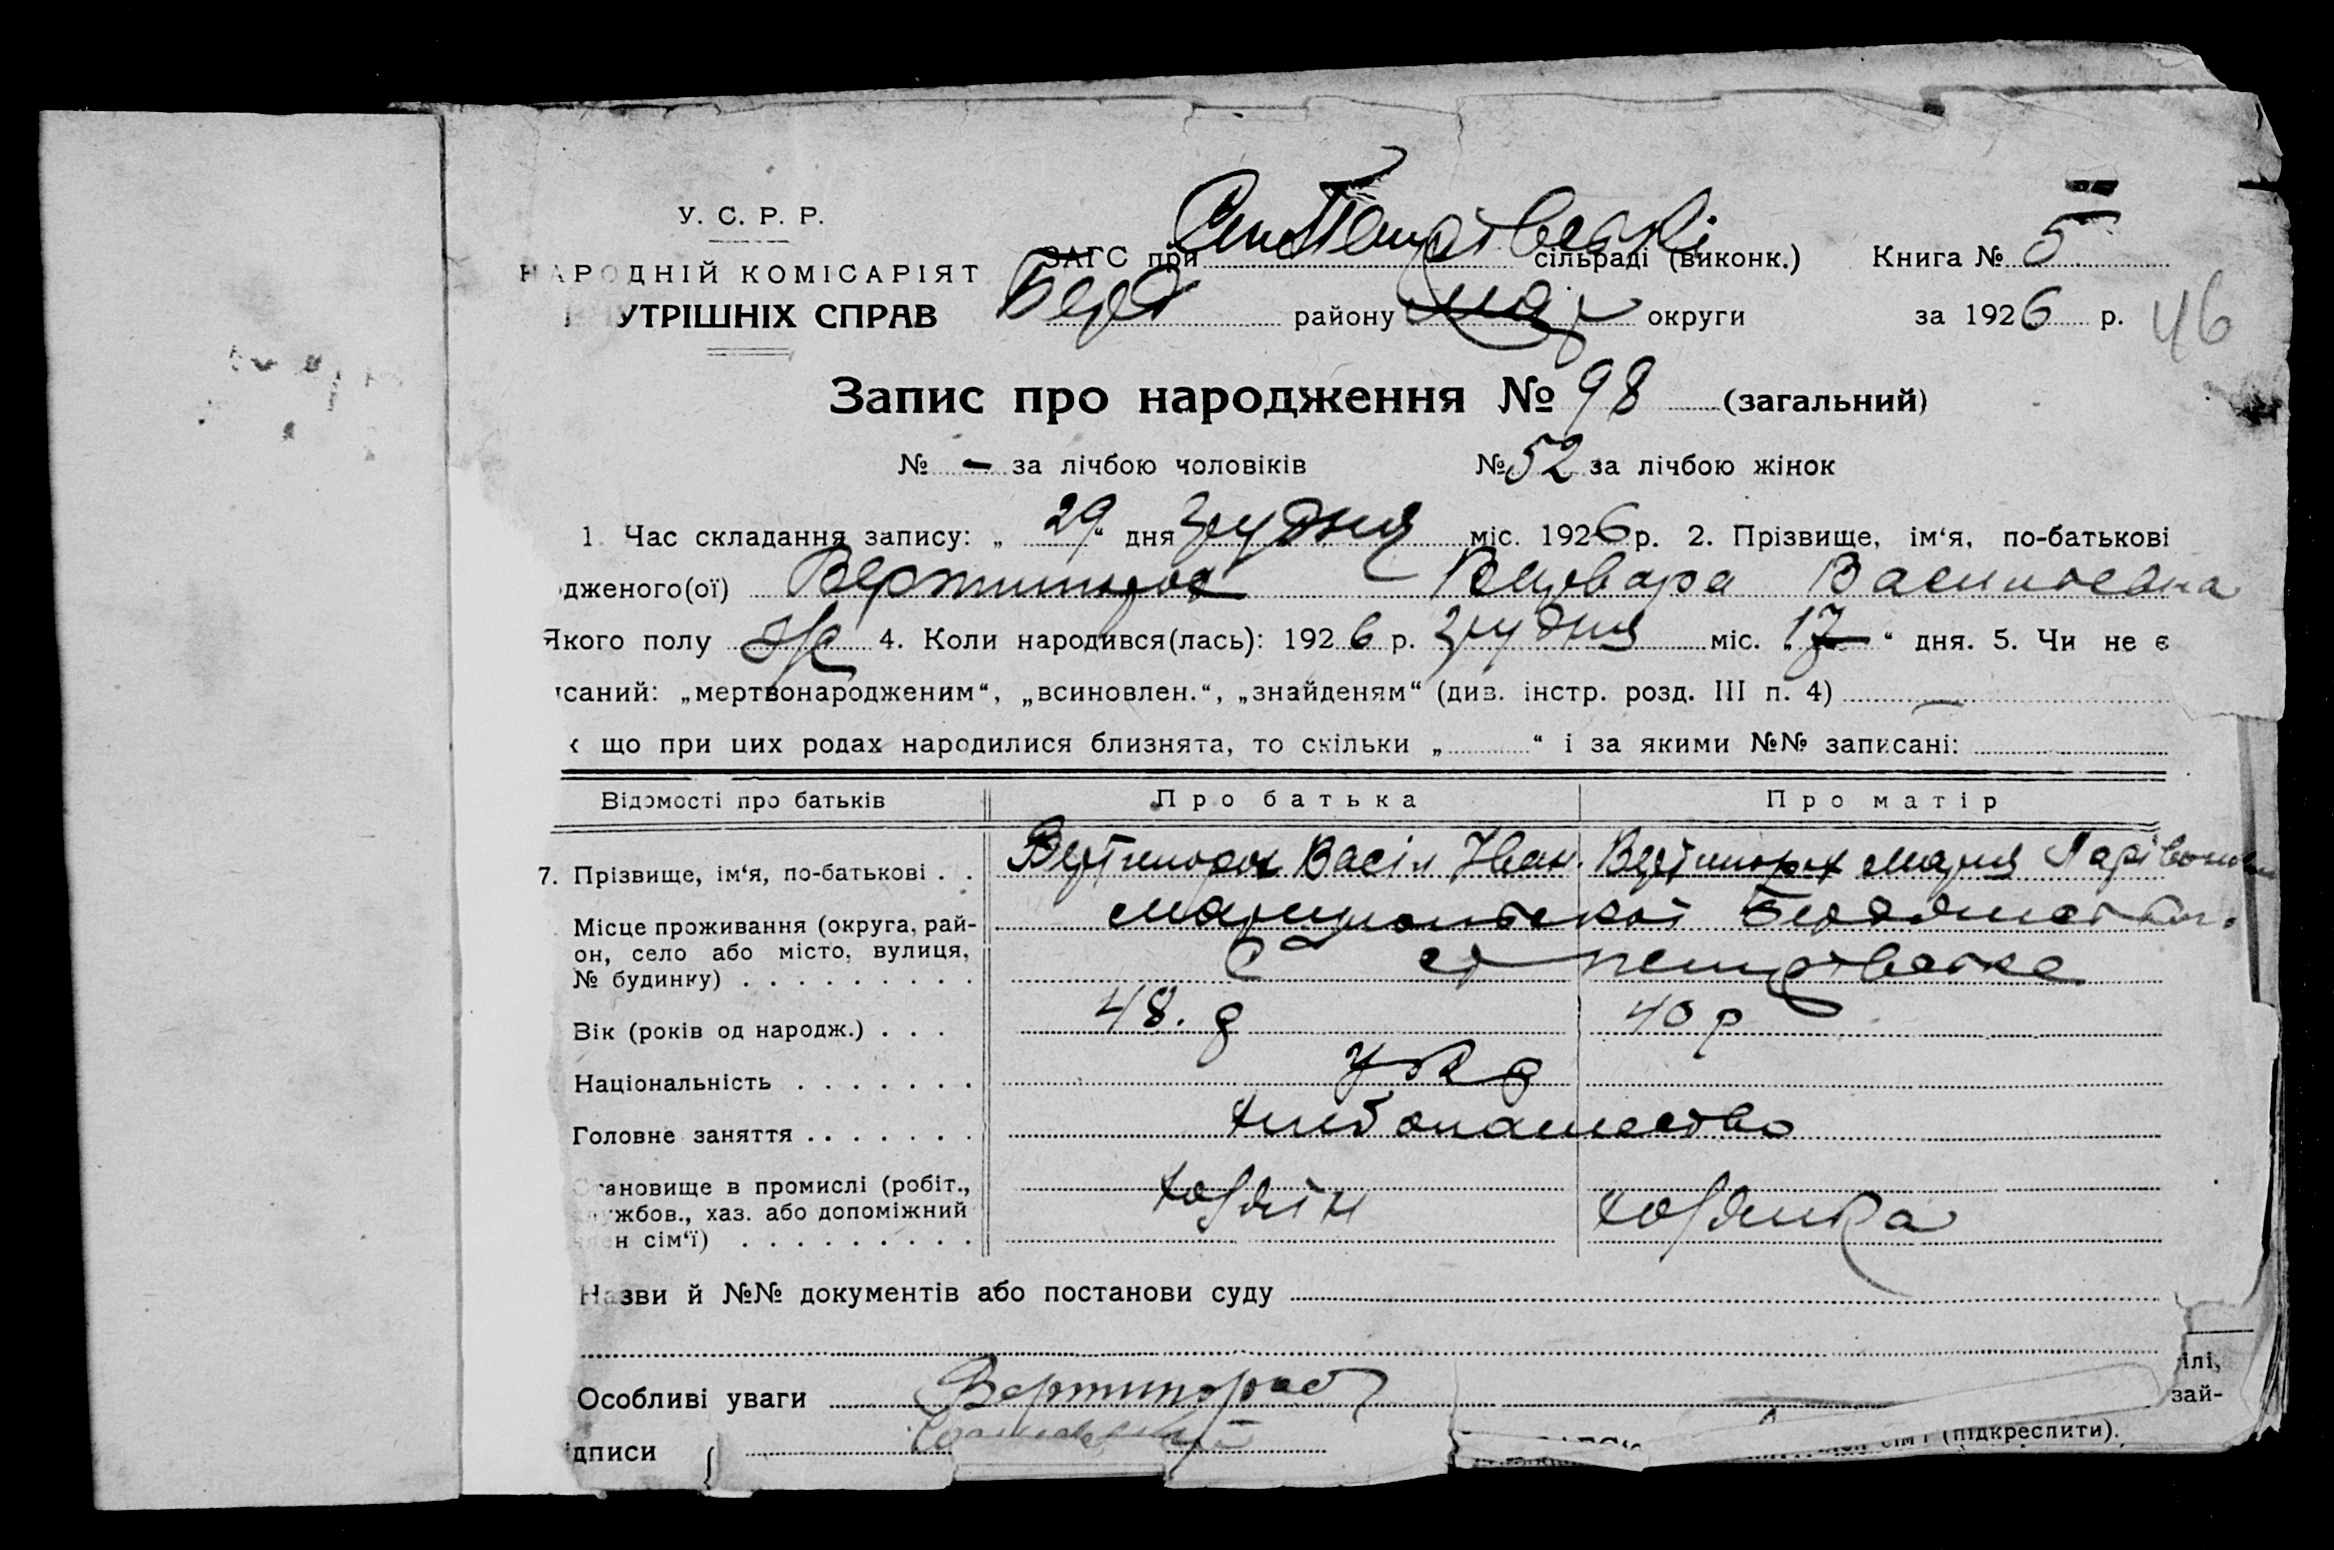 У. С. Р. Р.
НАРОДНІЙ КОМІСАРІЯТ
УТРІШНІХ СПРАВ
ЗАГС при сільраді (виконк.) Книга № 5
Берд району Мар округи за 1926 р. 46
Запис про народження № 98 (загальний)
№ - за лічбою чоловіків № 52 за лічбою жінок
1. Час складання запису: „29“ дня грудня міс. 1926 р. 2. Прізвище, ім‘я, по-батькові
дженого(ої) Вертипорох Варвара Васильевна
Якого полу Ж 4. Коли народився(лась): 1926 р. грудня міс. „17“ дня. 5. Чи не є
саний: „мертвонародженим“, „всиновлен.“, „знайденям“ (див. інстр. розд. III п. 4)
що при цих родах народилися близнята, то скільки „ “ і за якими №№ записані:
Відомості про батьків Про батька Про матір
7. Прізвище, ім‘я, по-батькові . . Вертипорох Васіл Іван. Вертипорох Мария
Місце проживання (округа, рай-
он, село або місто, вулиця,
№ будинку) . . . . . . . . .
Мариупольскої
С ст Петровська
Вік (років од народж.) . . . 48. р 40 р
Національність . . . . . . . укр
Головне заняття . . . . . . . хлибопашество
тановище в промислі (робіт.,
ужбов., хаз. або допоміжний
н сім‘ї) . . . . . . . . .
хозяін хозяика
Назви й №№ документів або постанови суду
Особливі уваги Вертипорох
ілі,
зай-
дписи
(підкреслити).